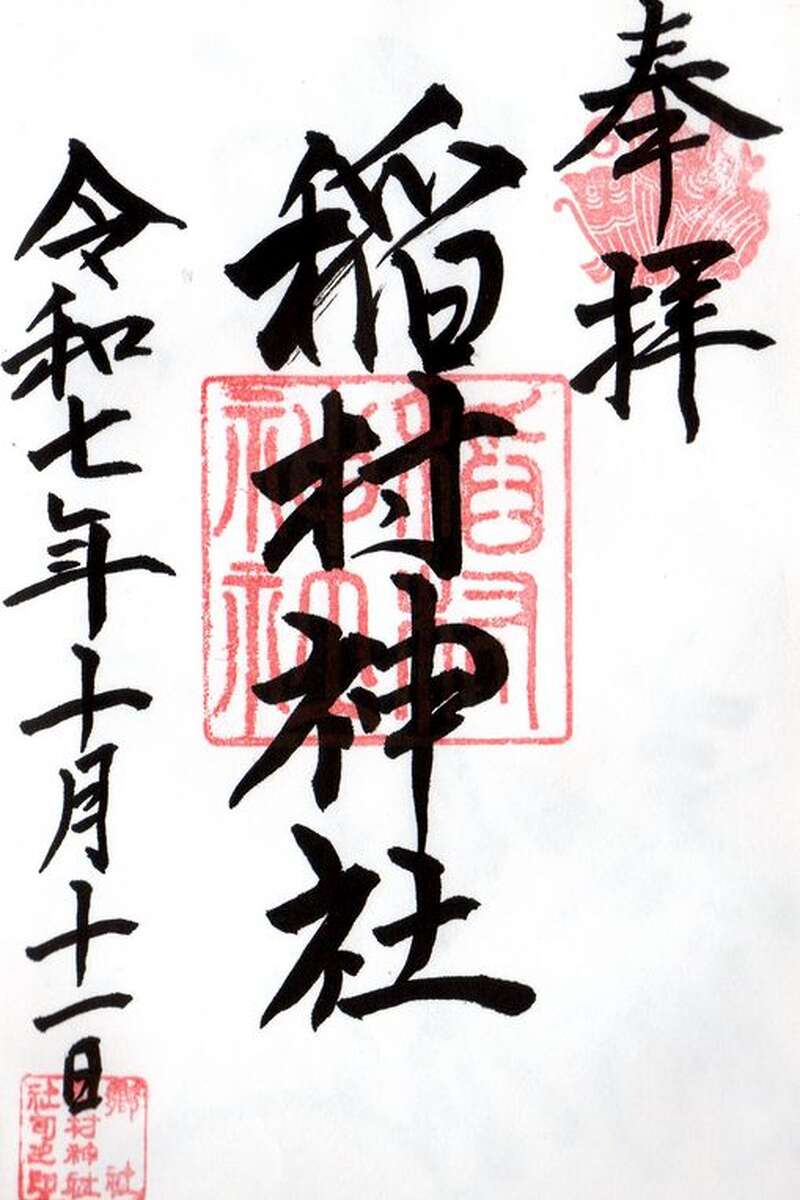 奉拝
稲村神社
令和七年十月十一日
稲村神社
郷社
村神社
社司之印